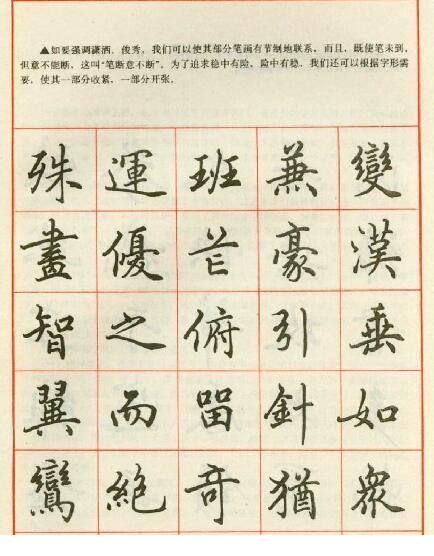 ▲如要强调潇洒、俊秀，我们可以使其部分笔画有节制地联系，而且，既使笔未到，
但意不能断，这叫“笔断意不断”，为了追求稳中有险，险中有稳，我们还可以根据字形需
要，使其一部分收紧，一部分开张。
殊運班兼變
畫優芒豪漢
智之俯引乘
翼而留針如
鸞絕奇猶眾